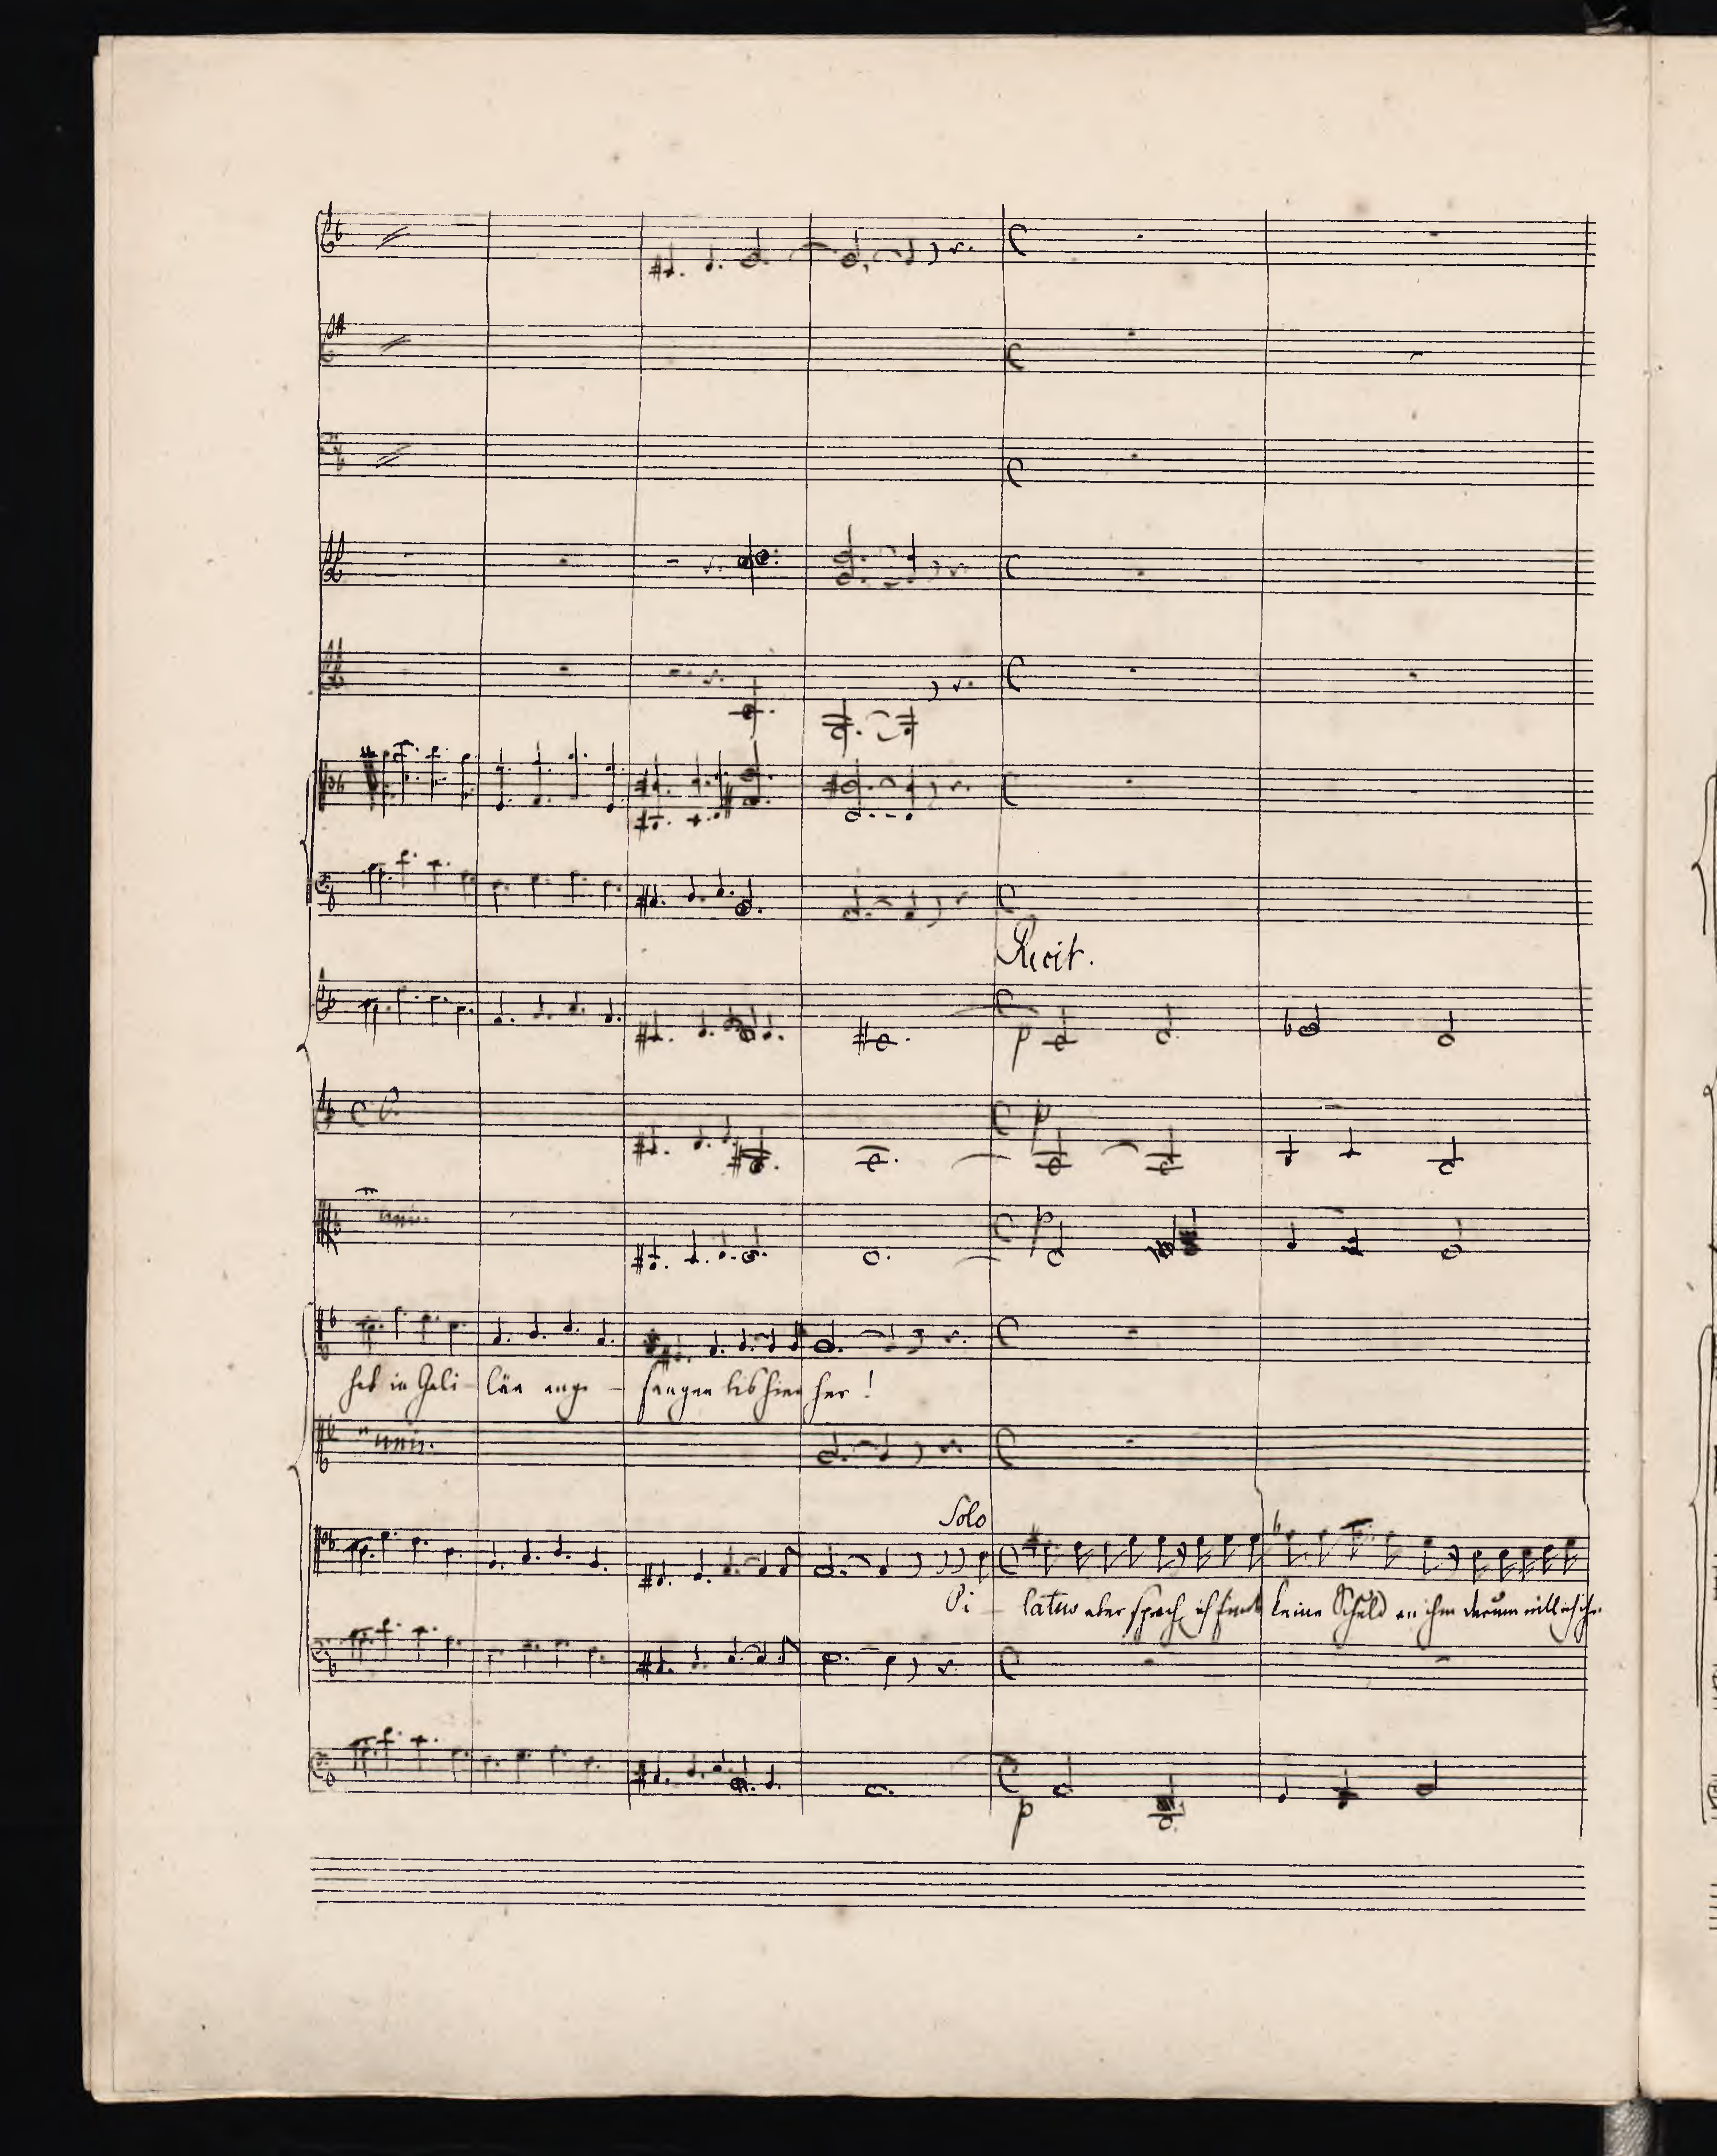 Recit.
p
p
p
unis.
hat in Gali - läa ange - fangen bis hier her!
unis.
Solo
Pi - latus aber sprach, ich finde keine Schuld an ihm darum will ich ihn
p